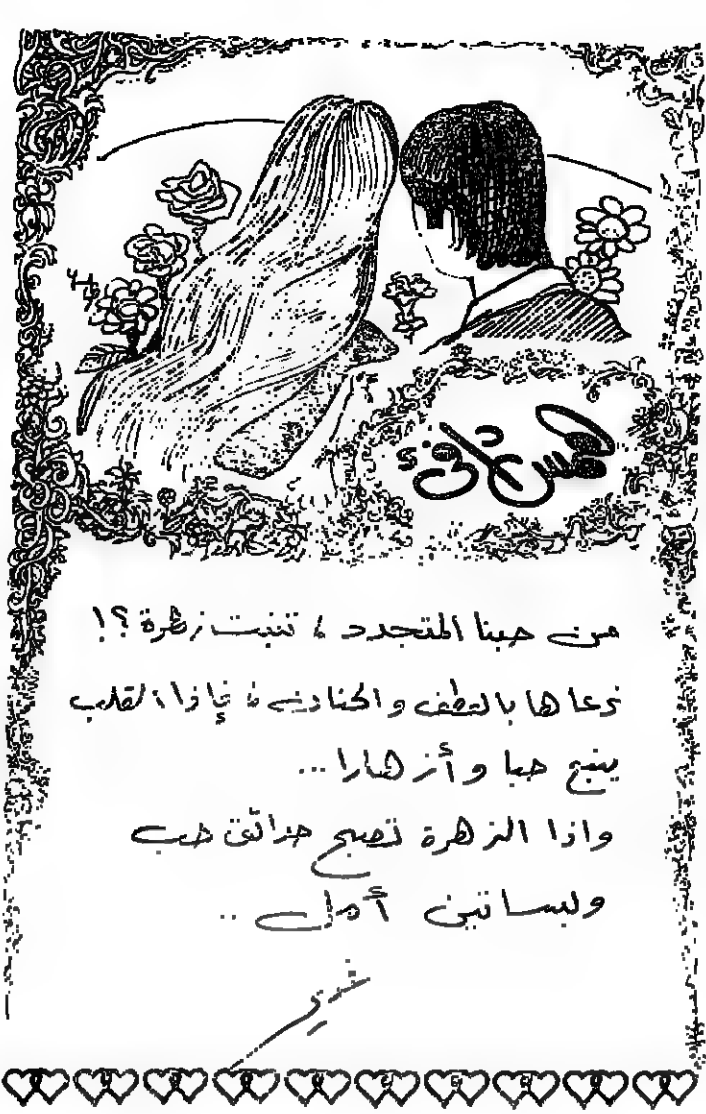 همس دافئ
من حبنا المتجدد ، تنبت زهرة ؟!
نرعاها بالعطف والحنان ، فإذا القلب
ينبع حبا وأزهارا ...
واذا الزهرة تصبح حدائق حب
وبساتين أمل ..